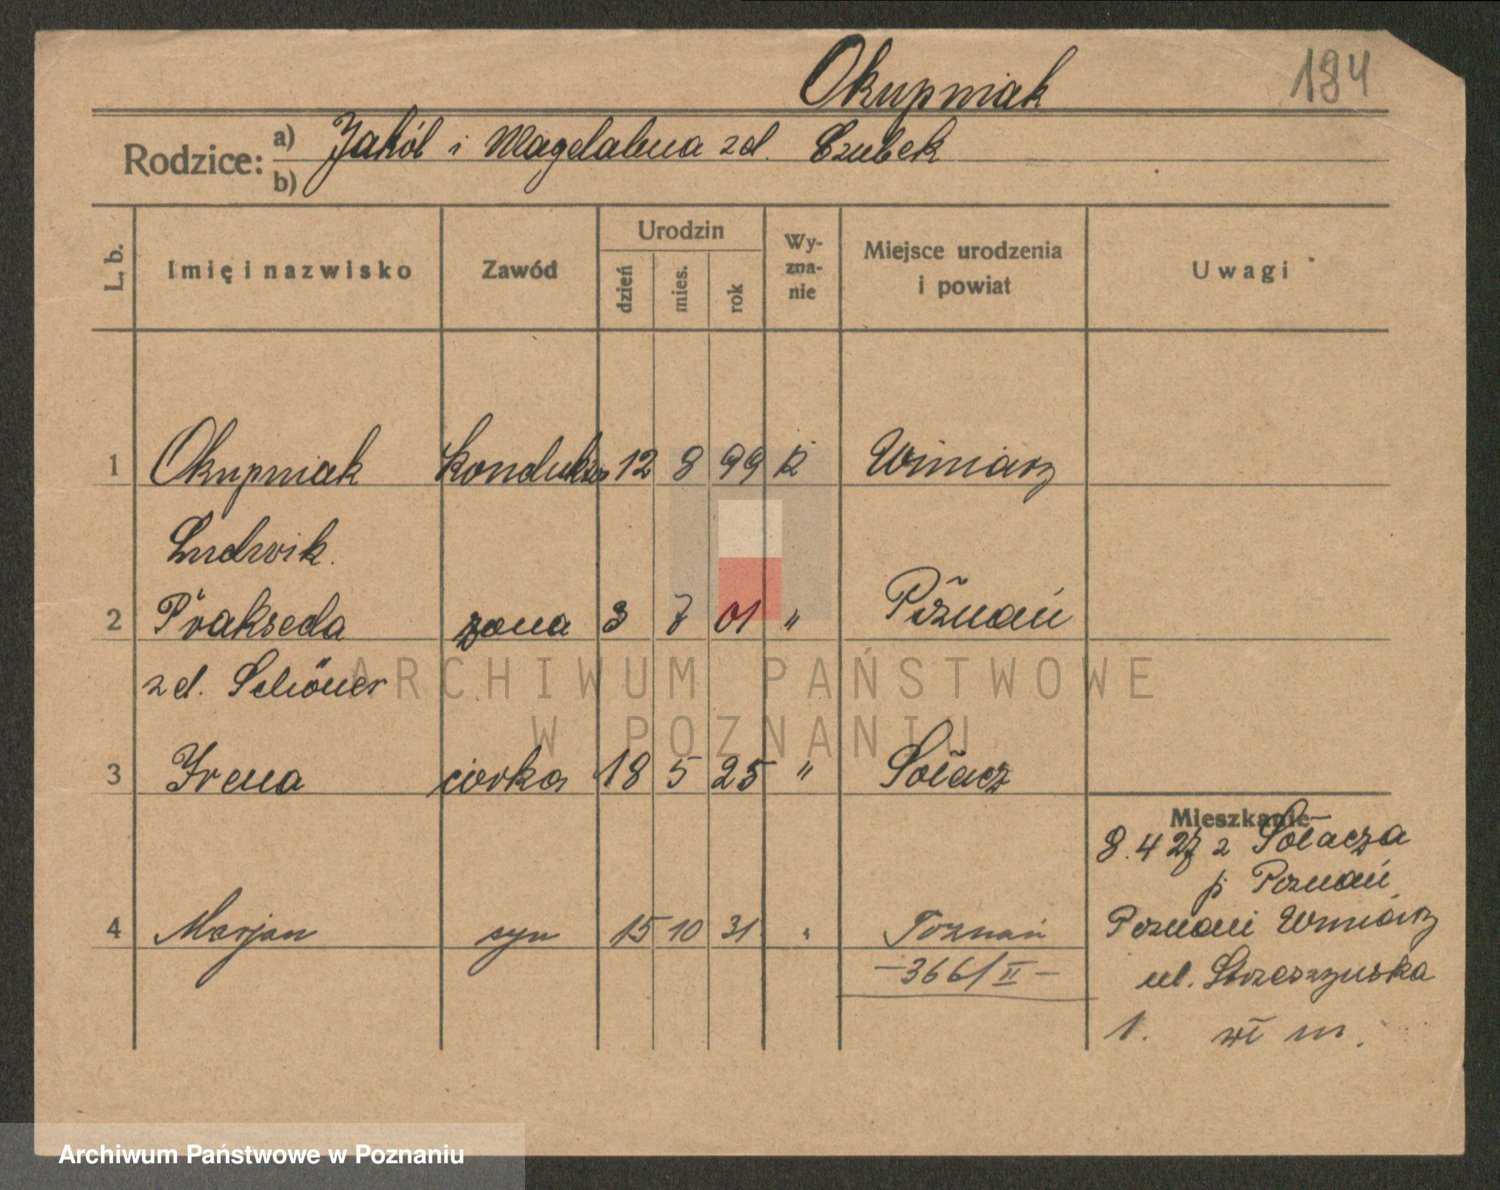 Okupniak
194
Rodzice: a) Jakób i Magdalena zd. Czubek
b)
L. b. Imię i nazwisko Zawód Urodzin dzień mies. rok Wy-zna-nie Miejsce urodzenia i powiat Uwagi
1 Okupniak konduktor 12 8 99 k Winiary
Ludwik.
2 Prakseda żona 3 7 01 " Poznań
zd. Schöner
ARCHIWUM PAŃSTWOWE
W POZNANIU
3 Irena córka 18 5 25 " Sołacz
Mieszkanie
8.4 27 z Sołacza
p Poznań
4 Marjan syn 15 10 31 " Poznań
Poznań Winiary
-366/II-
ul. Strzeszyńska
1. wł m.
Archiwum Państwowe w Poznaniu